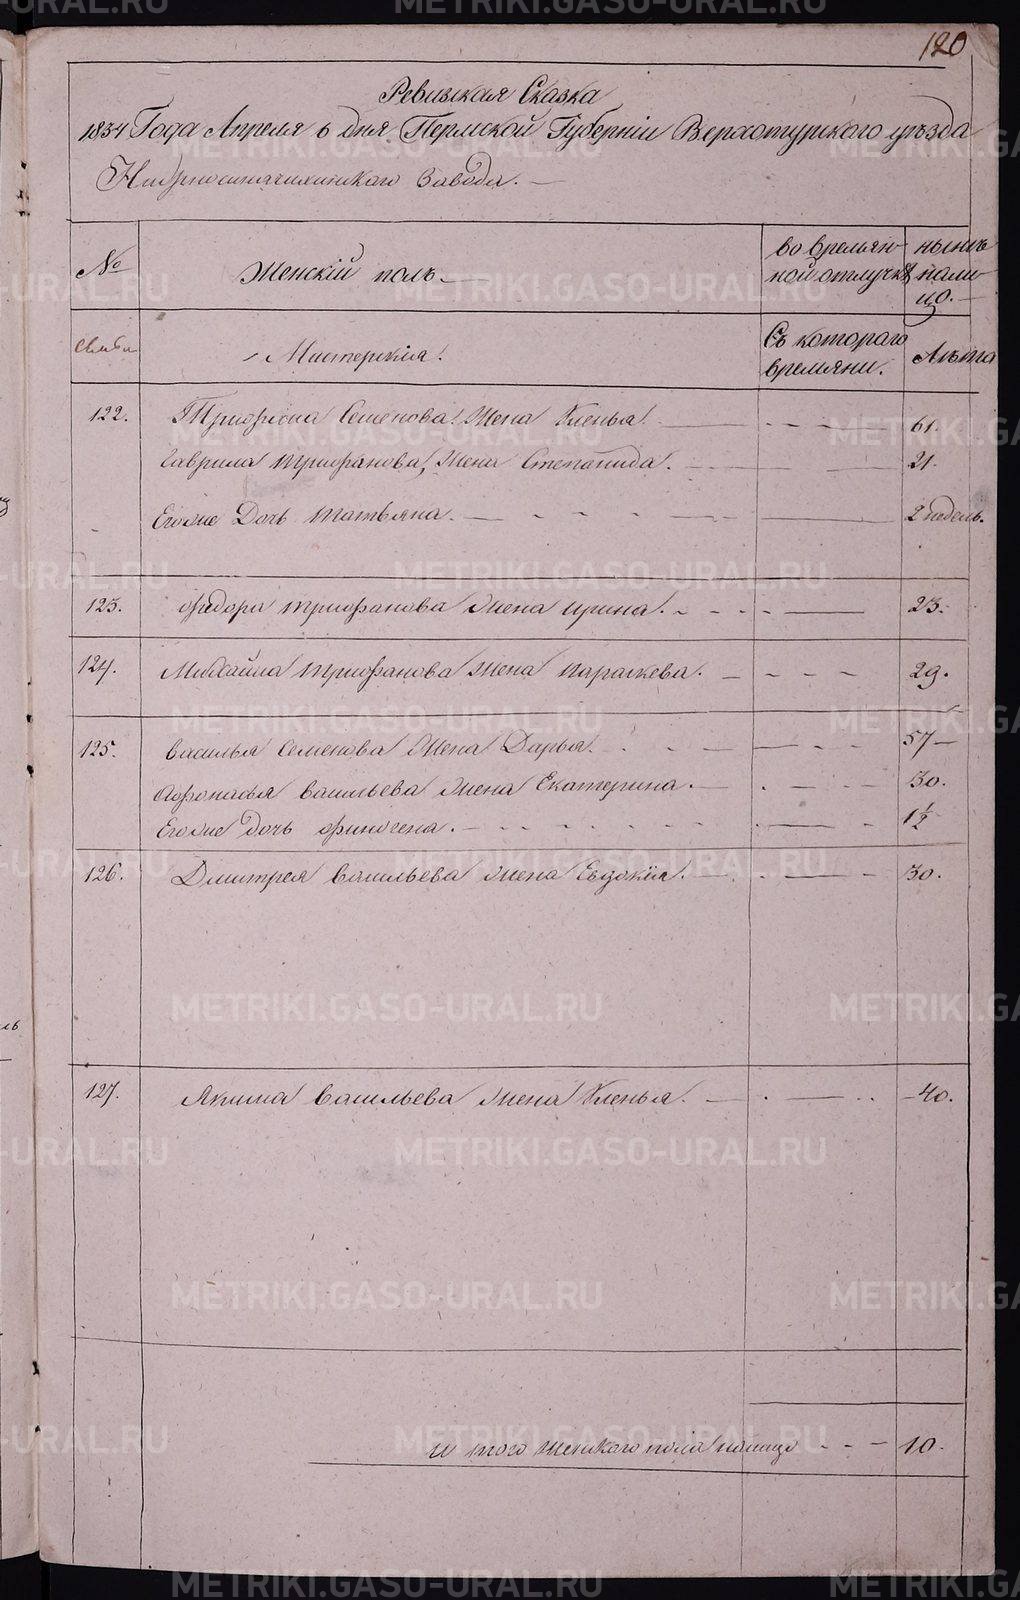 120
Ревизская Сказка
1834 Года Апреля 6 дня Пермской Губернiи Верхотурского уѣзда
Нижнесинячихинского Завода. —
№ Женскiй полъ — во времян- нынѣ
ной отлучкѣ нали-
цо. —
семьи Мастерскiя. Съ котораго Лѣта
времяни.
122. Трифона Семенова Жена Уленья 61.
Гаврила трифанова, Жена Степанида. 21.
Егоже Дочь татьяна. 2 недель.
123. федора трифанова Жена ирина. 23.
124. Михайла трифанова Жена параскева. 29.
125. василья Семенова Жена Дарья. 57 —
Афонасья васильева Жена Екатерина. 30.
Егоже дочь финогена. 1½
126. Дмитрея васильева Жена Евдокiя. 30.
127. Якима васильева Жена Уленья. 40.
и того женского пола налицо 10.
METRIKI.GASO-URAL.RU